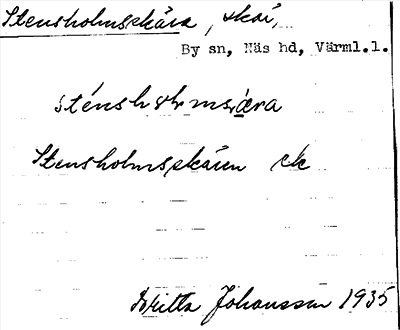 Stensholmsskära, skär,
By sn, Näs hd, Värml.l.
Stensholmsskären ek
Britta Johansson 1935